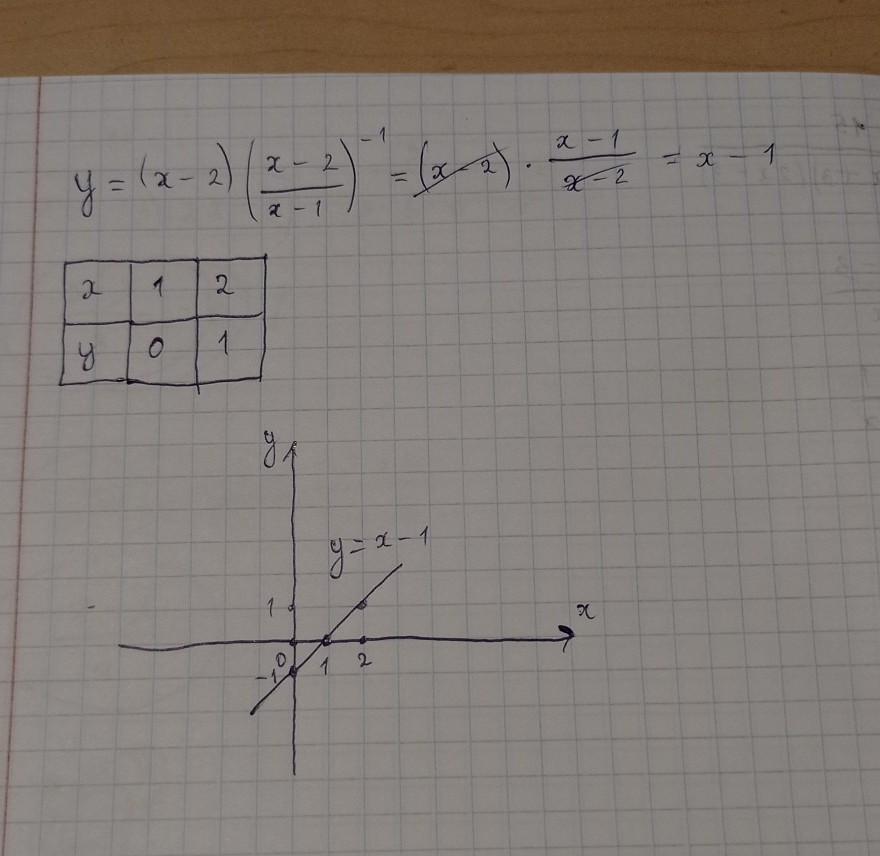 y = (x - 2) ((x - 2)/(x - 1))^-1 = (x - 2) · (x - 1)/(x - 2) = x - 1
x 1 2
y 0 1
y
y = x - 1
1
x
0 1 2
-1